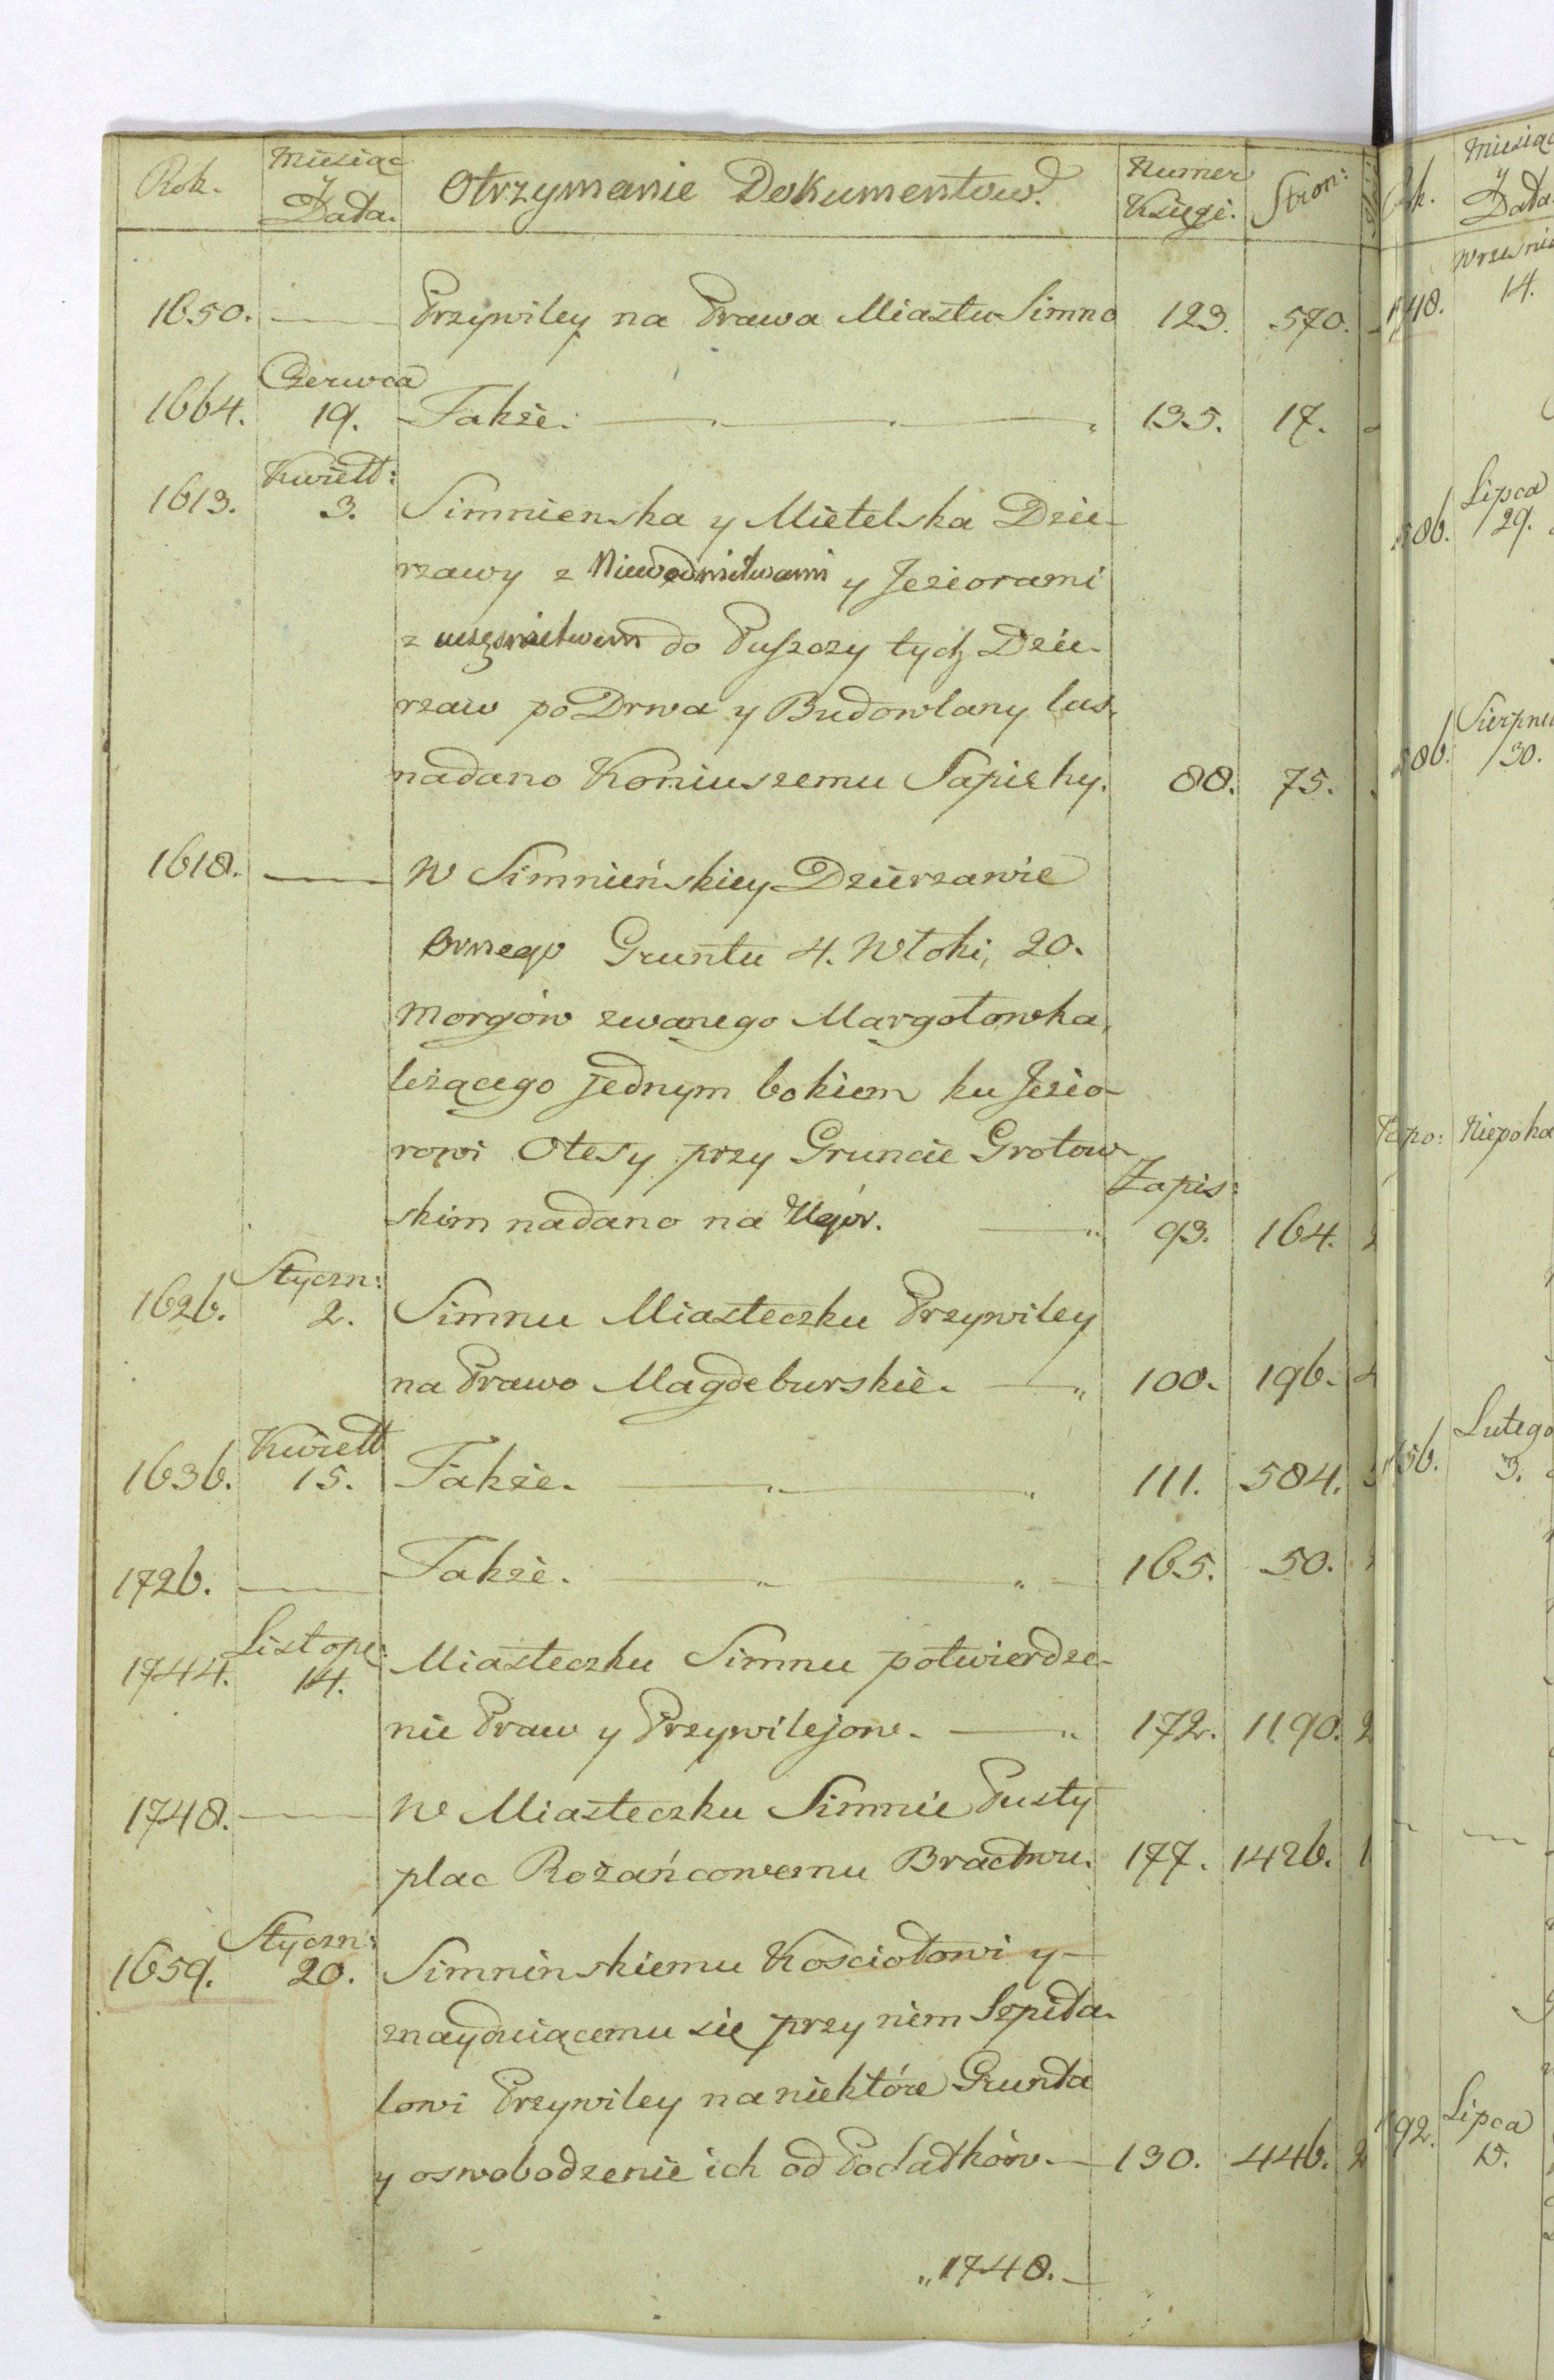 Rok. Miesiąc y Data. Otrzymanie Dokumentow. Numer Księgi. Stron:
1650. — Przywiley na Prawa Miastu Simno 123. 570.
1664. Czerwca 19. Także. 135. 17.
1613. Kwiett: 3. Simnienska y Mietelska Dzie-
rzawy z Niewodnictwami y Jeziorami
z do Puszczy tych Dzie-
rzaw po Drwa y Budowlany las.
nadano Koniuszemu Sapiehy. 88. 75.
1618. — W Simnieńskiey Dzierzawie
Ornego Gruntu 4. Włoki, 20.
Morgów zwanego Margołowka,
leżącego jednym bokiem ku Jezio-
rowi Olesy przy Gruncie Grotow-
skim nadano na Ugór. — Zapis: 93. 164.
1626. Styczn: 2. Simnu Miasteczku Przywiley
na Prawo Magdeburskie. — 100. 196.
1636. Kwiett 15. Także. 111. 584.
1726. — Także. 165. 50.
1744. Listop: 14. Miasteczku Simnu potwierdze-
nie Praw y Przywilejow. — 172. 1190. 2
1748. — W Miasteczku Simnie Pusty
plac Rożańcowemu Bractwu. 177. 1426. 1
1659. Styczn: 20. Simninskiemu Kosciołowi y
znayduiącemu się przy niem Szpita-
lowi Przywiley na niektóre Grunta
y oswobodzenie ich od Podatków. — 130. 446. 2
„1748. —
Miesiąc
y
Data.
14.
Lipca
29.
Sierpni
30.
Lutego
3.
Lipca
15.